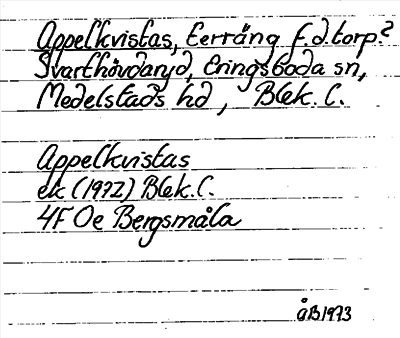 Appelkvistas, terräng f.d torp?
Svarthövdaryd, Eringsboda sn,
Medelstads hd, Blek. l.
Appelkvistas
ek (1972) Blek. l.
4F Oe Bergsmåla
åB 1973